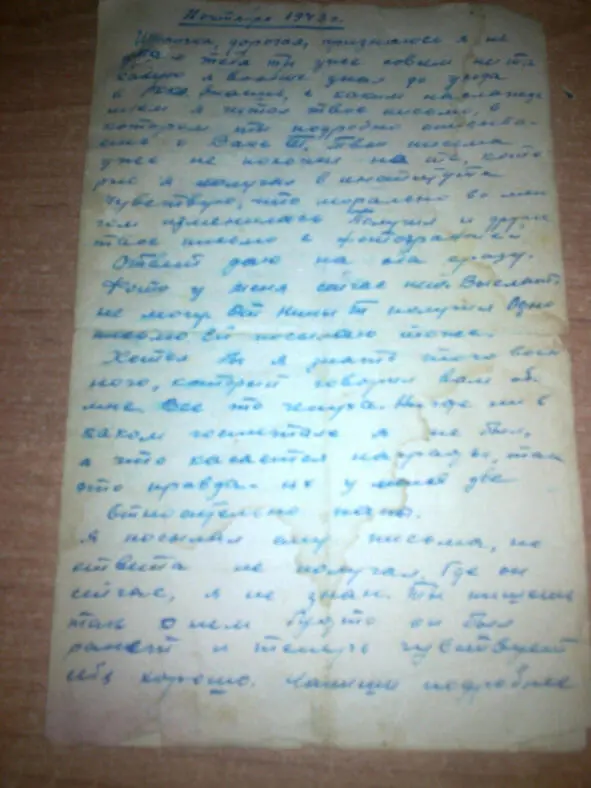 Ноябрь 1943 г.
дорогая, признаюсь я не
тебя ты уже совсем не та
какую я вообще знал до ухода
в каким наслажде
нием я читал твое письмо, в
котором ты подробно описыва-
ешь о Ване Т. Твои письма
уже не похожи на те, кото
рые я получал в институте
Чувствую, что морально во мно
гом изменилась Получил и другое
твое письмо с фотографией
Ответ даю на оба сразу.
Фото у меня сейчас нет. Выслать
не могу От Нины Т получил одно
письмо Ей посылаю тоже.
Хотел бы я знать того воен
ного, который говорил вам об
мне. Все это чепуха. Нигде ни в
каком госпитале я не был,
а что касается награды, так
это правда. их у меня две
Относительно папы.
я посылал ему письма, но
ответа не получал, Где он
сейчас, я не знаю. Ты пишешь
о нем будто он был
ранен и теперь чувствует
себя хорошо. Напиши подробнее